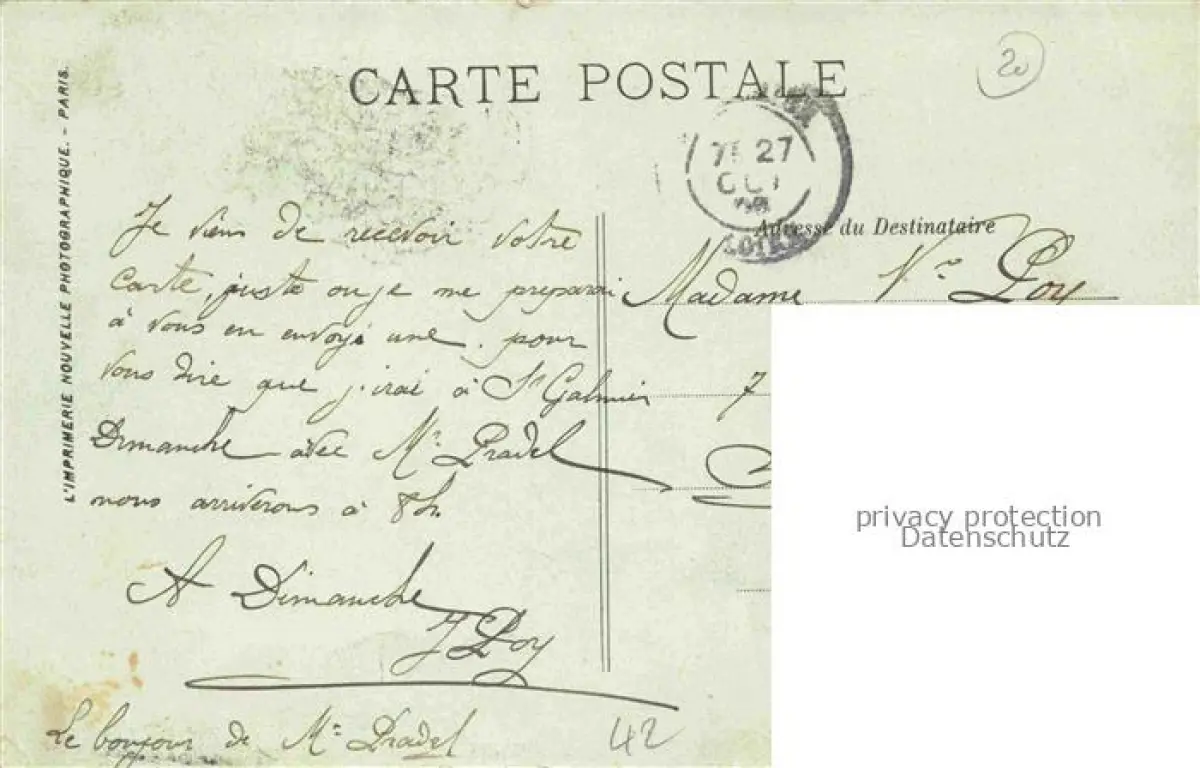 CARTE POSTALE
20
L'IMPRIMERIE NOUVELLE PHOTOGRAPHIQUE. - PARIS.
27
OCT
LOIRE
Je viens de recevoir votre
Carte, juste ou je me preparai
à vous en envoyé une. pour
vous dire que j'irai à St Galmier
Dimanche avec Mr Pradel
nous arriverons à 8h.
A Dimanche
J Poy
Le bonjour de Mr Pradel
42
Adresse du Destinataire
Madame Ve Poy
7
privacy protection
Datenschutz